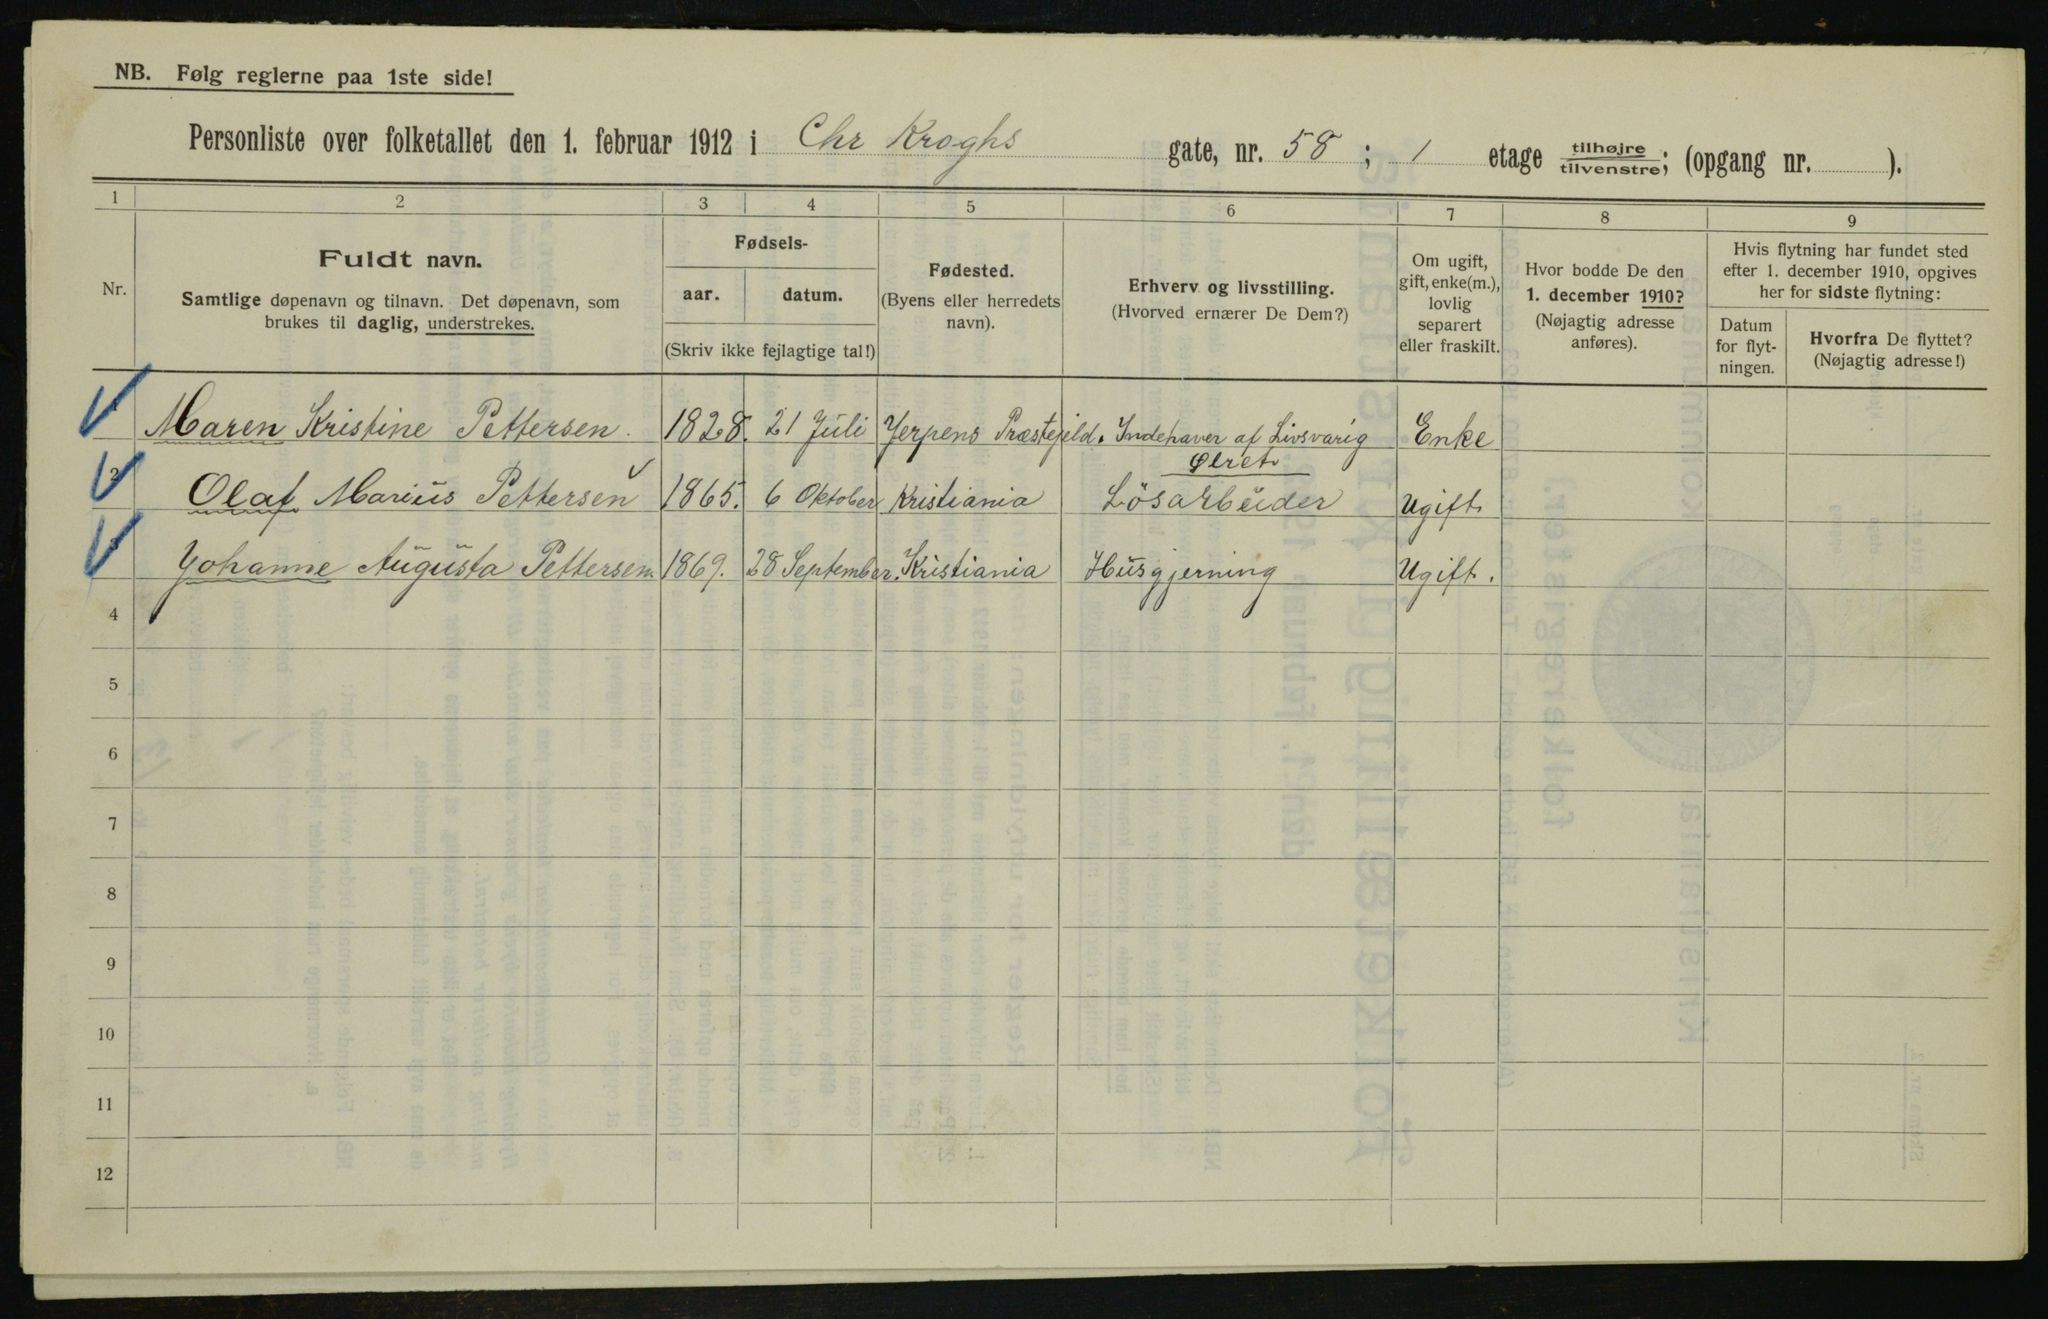 NB. Følg reglerne paa 1ste side!
Personliste over folketallet den 1. februar 1912 i Chr Kroghs gate, nr. 58 ; 1 etage tilhøjre/tilvenstre; (opgang nr. ).
1 2 3 4 5 6 7 8 9
Nr.
Fuldt navn.
Samtlige døpenavn og tilnavn. Det døpenavn, som
brukes til daglig, understrekes.
Fødsels-
aar. datum.
(Skriv ikke fejlagtige tal!)
Fødested.
(Byens eller herredets
navn).
Erhverv og livsstilling.
(Hvorved ernærer De Dem?)
Om ugift,
gift, enke(m.),
lovlig
separert
eller fraskilt.
Hvor bodde De den
1. december 1910?
(Nøjagtig adresse
anføres).
Hvis flytning har fundet sted
efter 1. december 1910, opgives
her for sidste flytning:
Datum
for flyt-
ningen.
Hvorfra De flyttet?
(Nøjagtig adresse!)
1 Maren Kristine Pettersen. 1828. 21 Juli Jerpens Præstejeld. Indehaver af Livsvarig Enke
Ølret.
2 Olaf Marius Pettersen 1865. 6 Oktober Kristiania Lösarbeider Ugift.
3 Johanne Augusta Pettersen. 1869. 28 September. Kristiania Husgjerning Ugift.
4
5
6
7
8
9
10
11
12